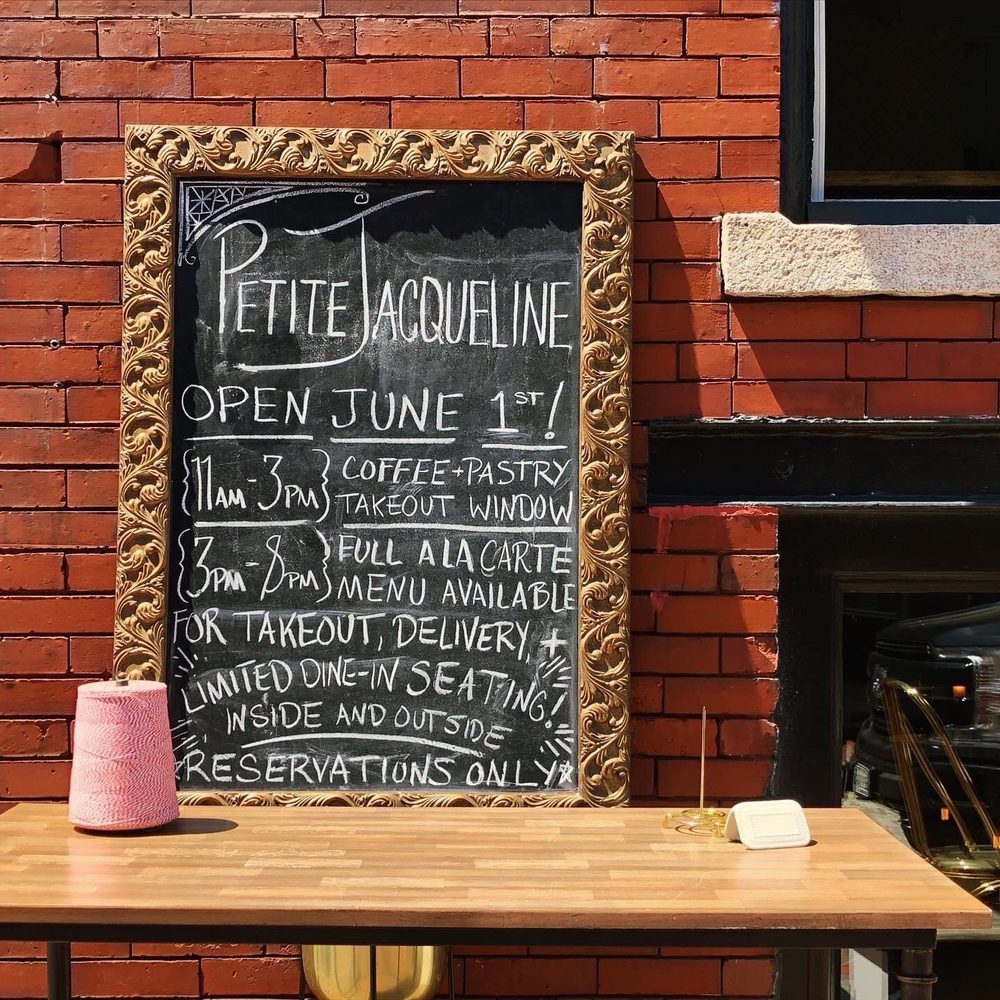 PETITE JACQUELINE
OPEN JUNE 1ST!
11AM-3PM} COFFEE+PASTRY
TAKEOUT WINDOW
{3PM-8PM} FULL A LA CARTE
MENU AVAILABLE
FOR TAKEOUT, DELIVERY, +
LIMITED DINE-IN SEATING!
INSIDE AND OUTSIDE
*RESERVATIONS ONLY*